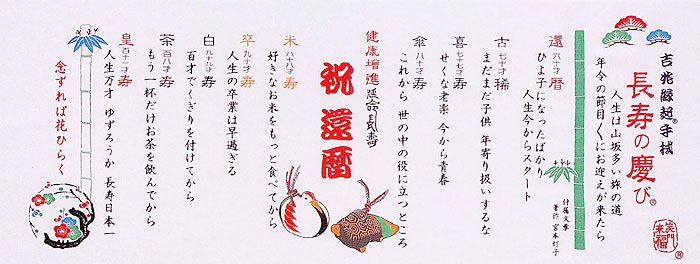 吉兆縁起®手拭
長寿の慶び®
人生は山坂多い旅の道
年令の節目〱にお迎えが来たら
還六十才暦
ひよ子になったばかり
人生今からスタート
付属文章
著作 宮本灯子
笑門来福
®
古七十才稀
まだまだ子供 年寄り扱いするな
喜七十七才寿
せくな老楽 今から青春
傘八十才寿
これから 世の中の役に立つところ
健康増進延命長寿
祝還暦
米八十八才寿
好きなお米をもっと食べてから
卒九十才寿
人生の卒業は早過ぎる
白九十九才寿
百才でくぎりを付けてから
茶百八才寿
もう一杯だけお茶を飲んでから
皇百十一才寿
人生万才 ゆずろうか 長寿日本一
念ずれば花ひらく